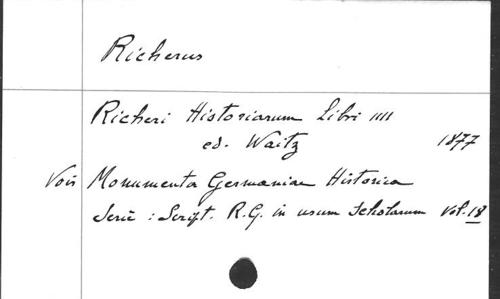 Richerus
Richeri Historiarum Libri IIII
ed. Waitz 1877
Voir Monumenta Germaniae Historica
Serie : Script. R.G. in usum scholarum Vol. 18